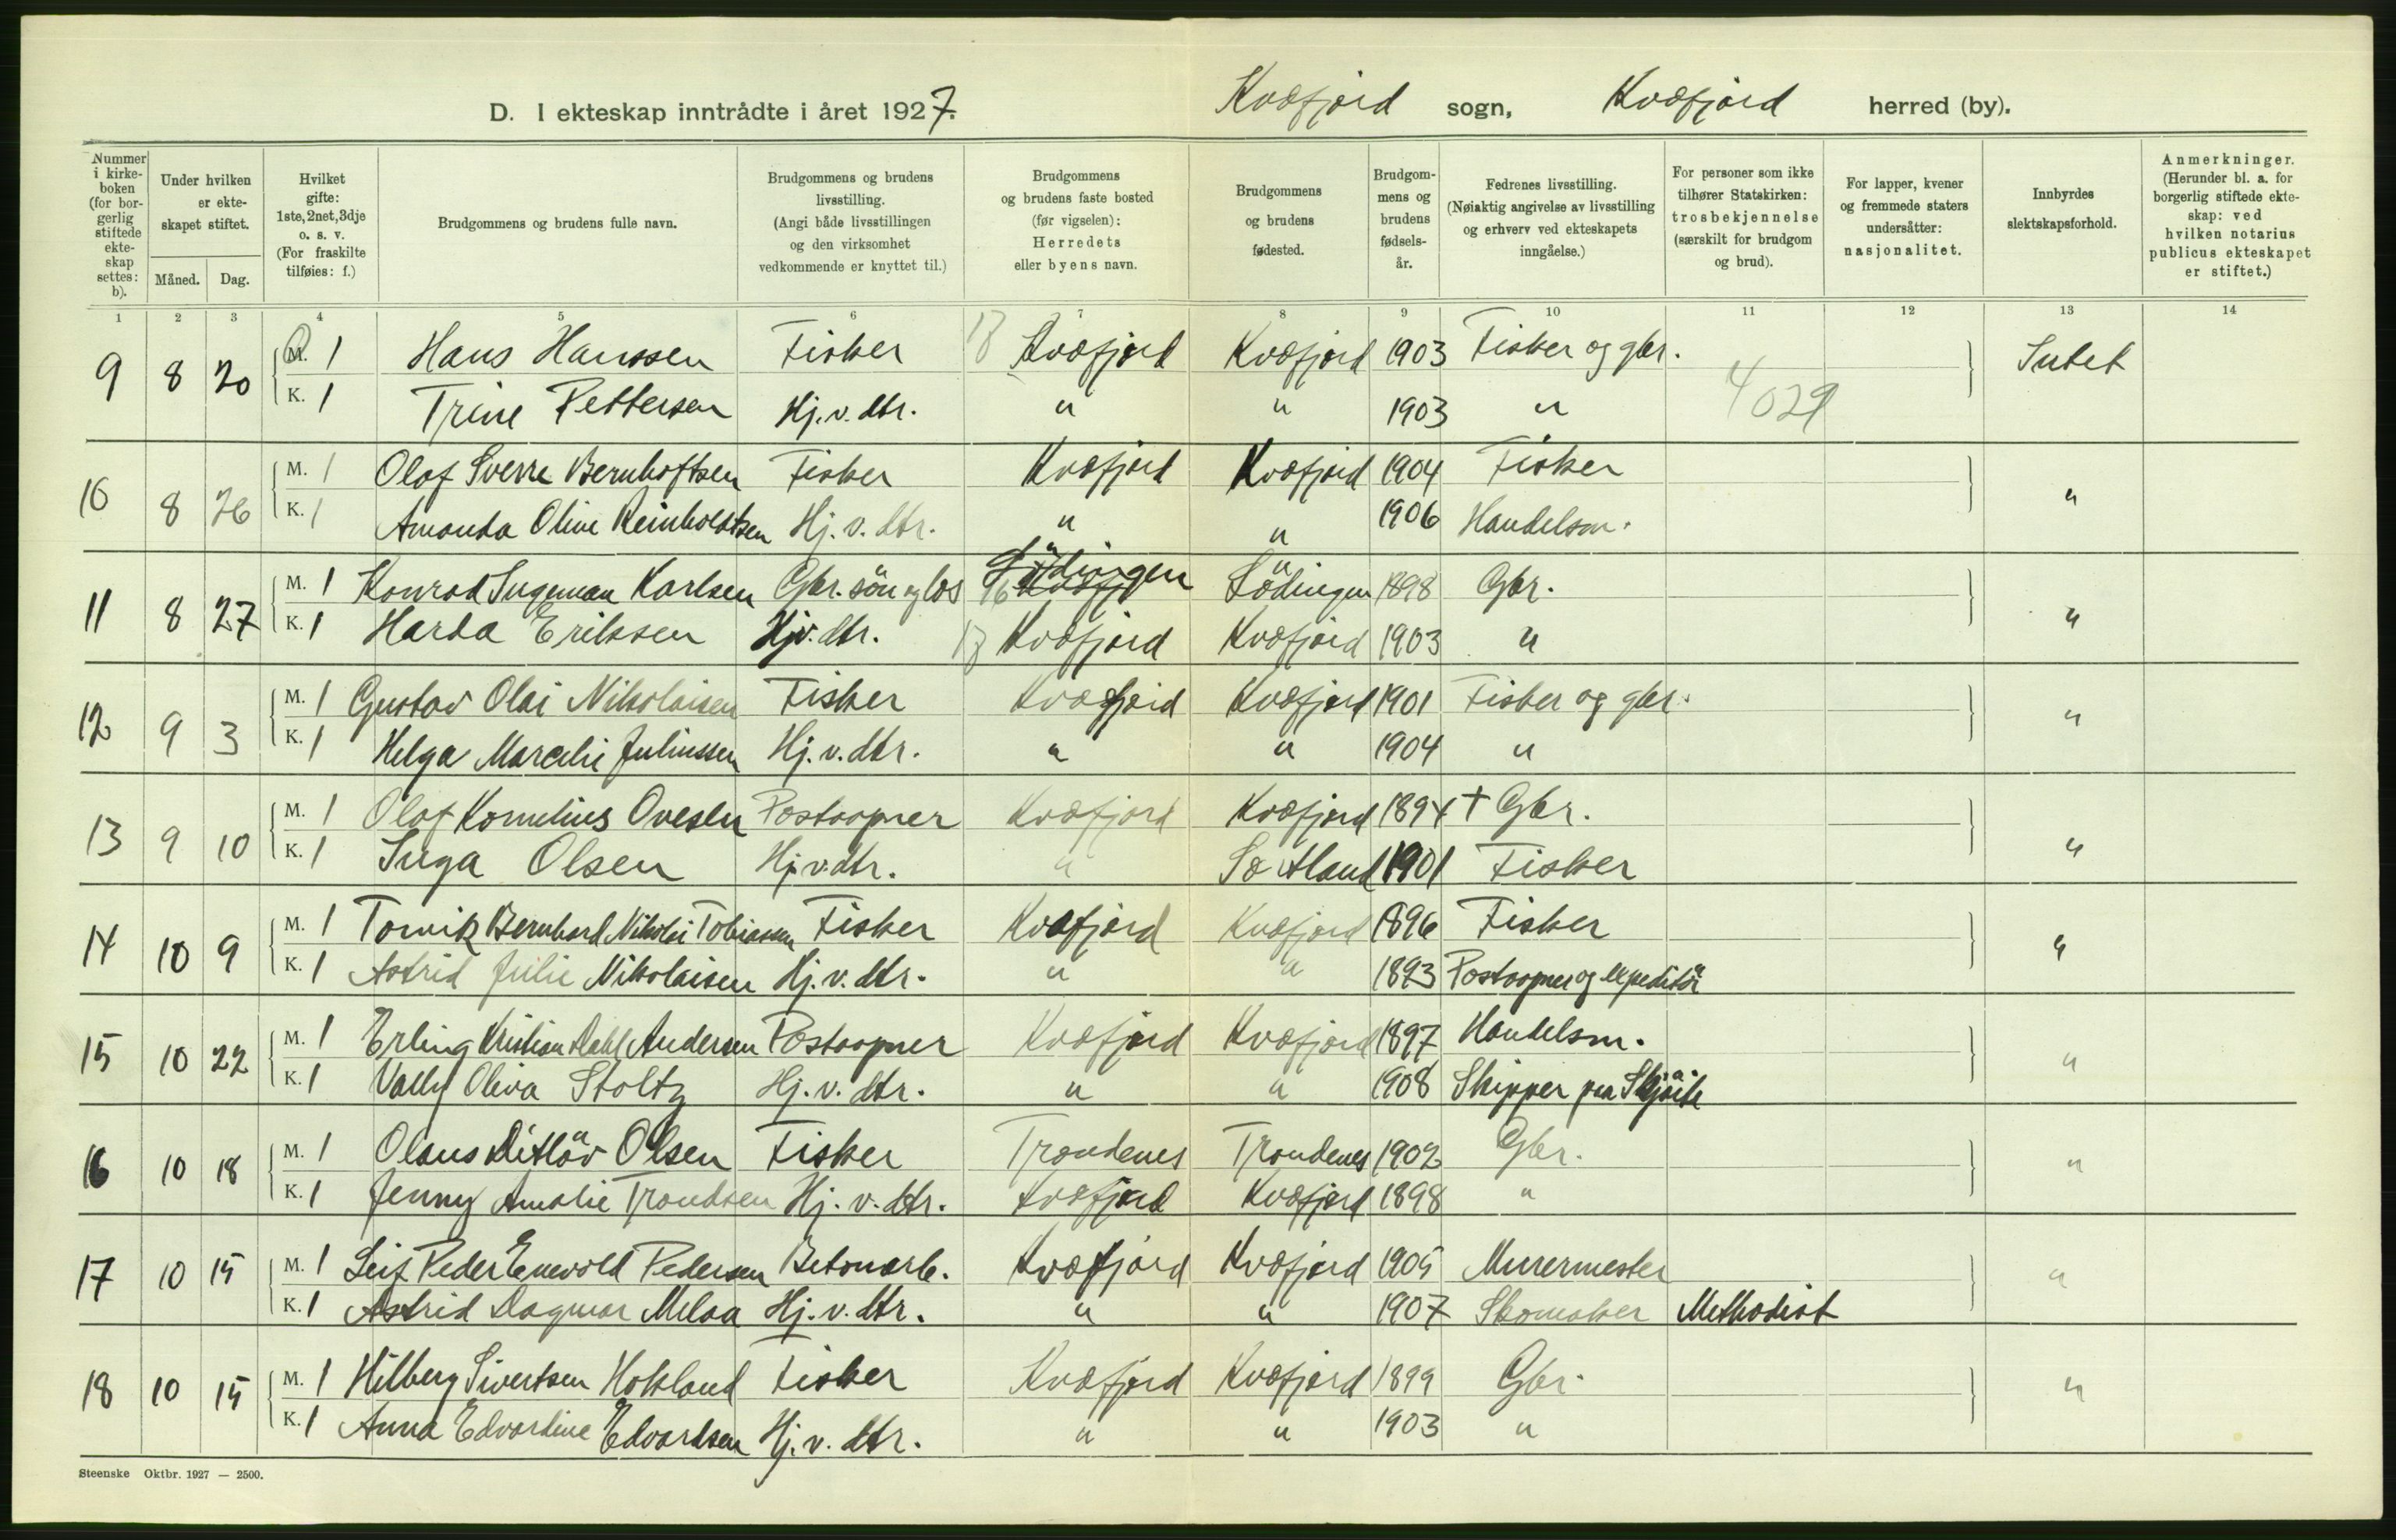 D. I ekteskap inntrådte i året 1927. Kvæfjord sogn, Kvæfjord herred (by).
Nummer i kirkeboken (for borgerlig stiftede ekteskap settes: b).
Under hvilken er ekteskapet stiftet. Måned. Dag.
Hvilket gifte: 1ste, 2net, 3dje o. s. v. (For fraskilte tilføies: f.)
Brudgommens og brudens fulle navn.
Brudgommens og brudens livsstilling. (Angi både livsstillingen og den virksomhet vedkommende er knyttet til.)
Brudgommens og brudens faste bosted (før vigselen): Herredets eller byens navn.
Brudgommens og brudens fødested.
Brudgommens og brudens fødselsår.
Fedrenes livsstilling. (Nøiaktig angivelse av livsstilling og erhverv ved ekteskapets inngåelse.)
For personer som ikke tilhører Statskirken: trosbekjennelse (særskilt for brudgom og brud).
For lapper, kvener og fremmede staters undersåtter: nasjonalitet.
Innbyrdes slektskapsforhold.
Anmerkninger. (Herunder bl. a. for borgerlig stiftede ekteskap: ved hvilken notarius publicus ekteskapet er stiftet.)
1 2 3 4 5 6 7 8 9 10 11 12 13 14
9 8 20 M. 1 Hans Hanssen Fisker 13 Kvæfjord Kvæfjord 1903 Fisker og gbr. Intet
K. 1 Trine Pettersen Hj. v. dtr. " " 1903 " 4029
10 8 26 M. 1 Olaf Sverre Bernhoftsen Fisker Kvæfjord Kvæfjord 1904 Fisker "
K. 1 Amanda Oline Reinholdtsen Hj. v. dtr. " " 1906 Handelsm.
11 8 27 M. 1 Konrad Ingeman Karlsen Gbr. sön og los 16 Lödingen Lödingen 1898 Gbr. "
K. 1 Harda Eriksen Hj. v. dtr. 13 Kvæfjord Kvæfjord 1903 "
12 9 3 M. 1 Gustav Olai Nikolaisen Fisker Kvæfjord Kvæfjord 1901 Fisker og gbr. "
K. 1 Helga Marelie Juliussen Hj. v. dtr. " " 1904 "
13 9 10 M. 1 Olaf Kornelius Ovesen Postaapner Kvæfjord Kvæfjord 1894 + Gbr. "
K. 1 Inga Olsen Hj. v. dtr. " Sortland 1901 Fisker
14 10 9 M. 1 Torvik Bernhard Nikolai Tobiassen Fisker Kvæfjord Kvæfjord 1896 Fisker "
K. 1 Astrid Julie Nikolaisen Hj. v. dtr. " " 1893 Postaapner og expeditör
15 10 22 M. 1 Erling Kristian Dahl Andersen Postaapner Kvæfjord Kvæfjord 1897 Handelsm. "
K. 1 Vally Oliva Stoltz Hj. v. dtr. " " 1908 Skipper paa Skjöite
16 10 18 M. 1 Olaus Ditlöv Olsen Fisker Trondenes Trondenes 1902 Gbr. "
K. 1 Jenny Amalie Trondsen Hj. v. dtr. Kvæfjord Kvæfjord 1898 "
17 10 15 M. 1 Leif Peder Enevold Pedersen Betonarb. Kvæfjord Kvæfjord 1905 Murermester "
K. 1 Astrid Dagmar Melaa Hj. v. dtr. " " 1907 Skomaker Methodist
18 10 15 M. 1 Hilberg Sivertsen Hokland Fisker Kvæfjord Kvæfjord 1899 Gbr. "
K. 1 Anna Edvardine Edvardsen Hj. v. dtr. " " 1903 "
Steenske Oktbr. 1927 — 2500.